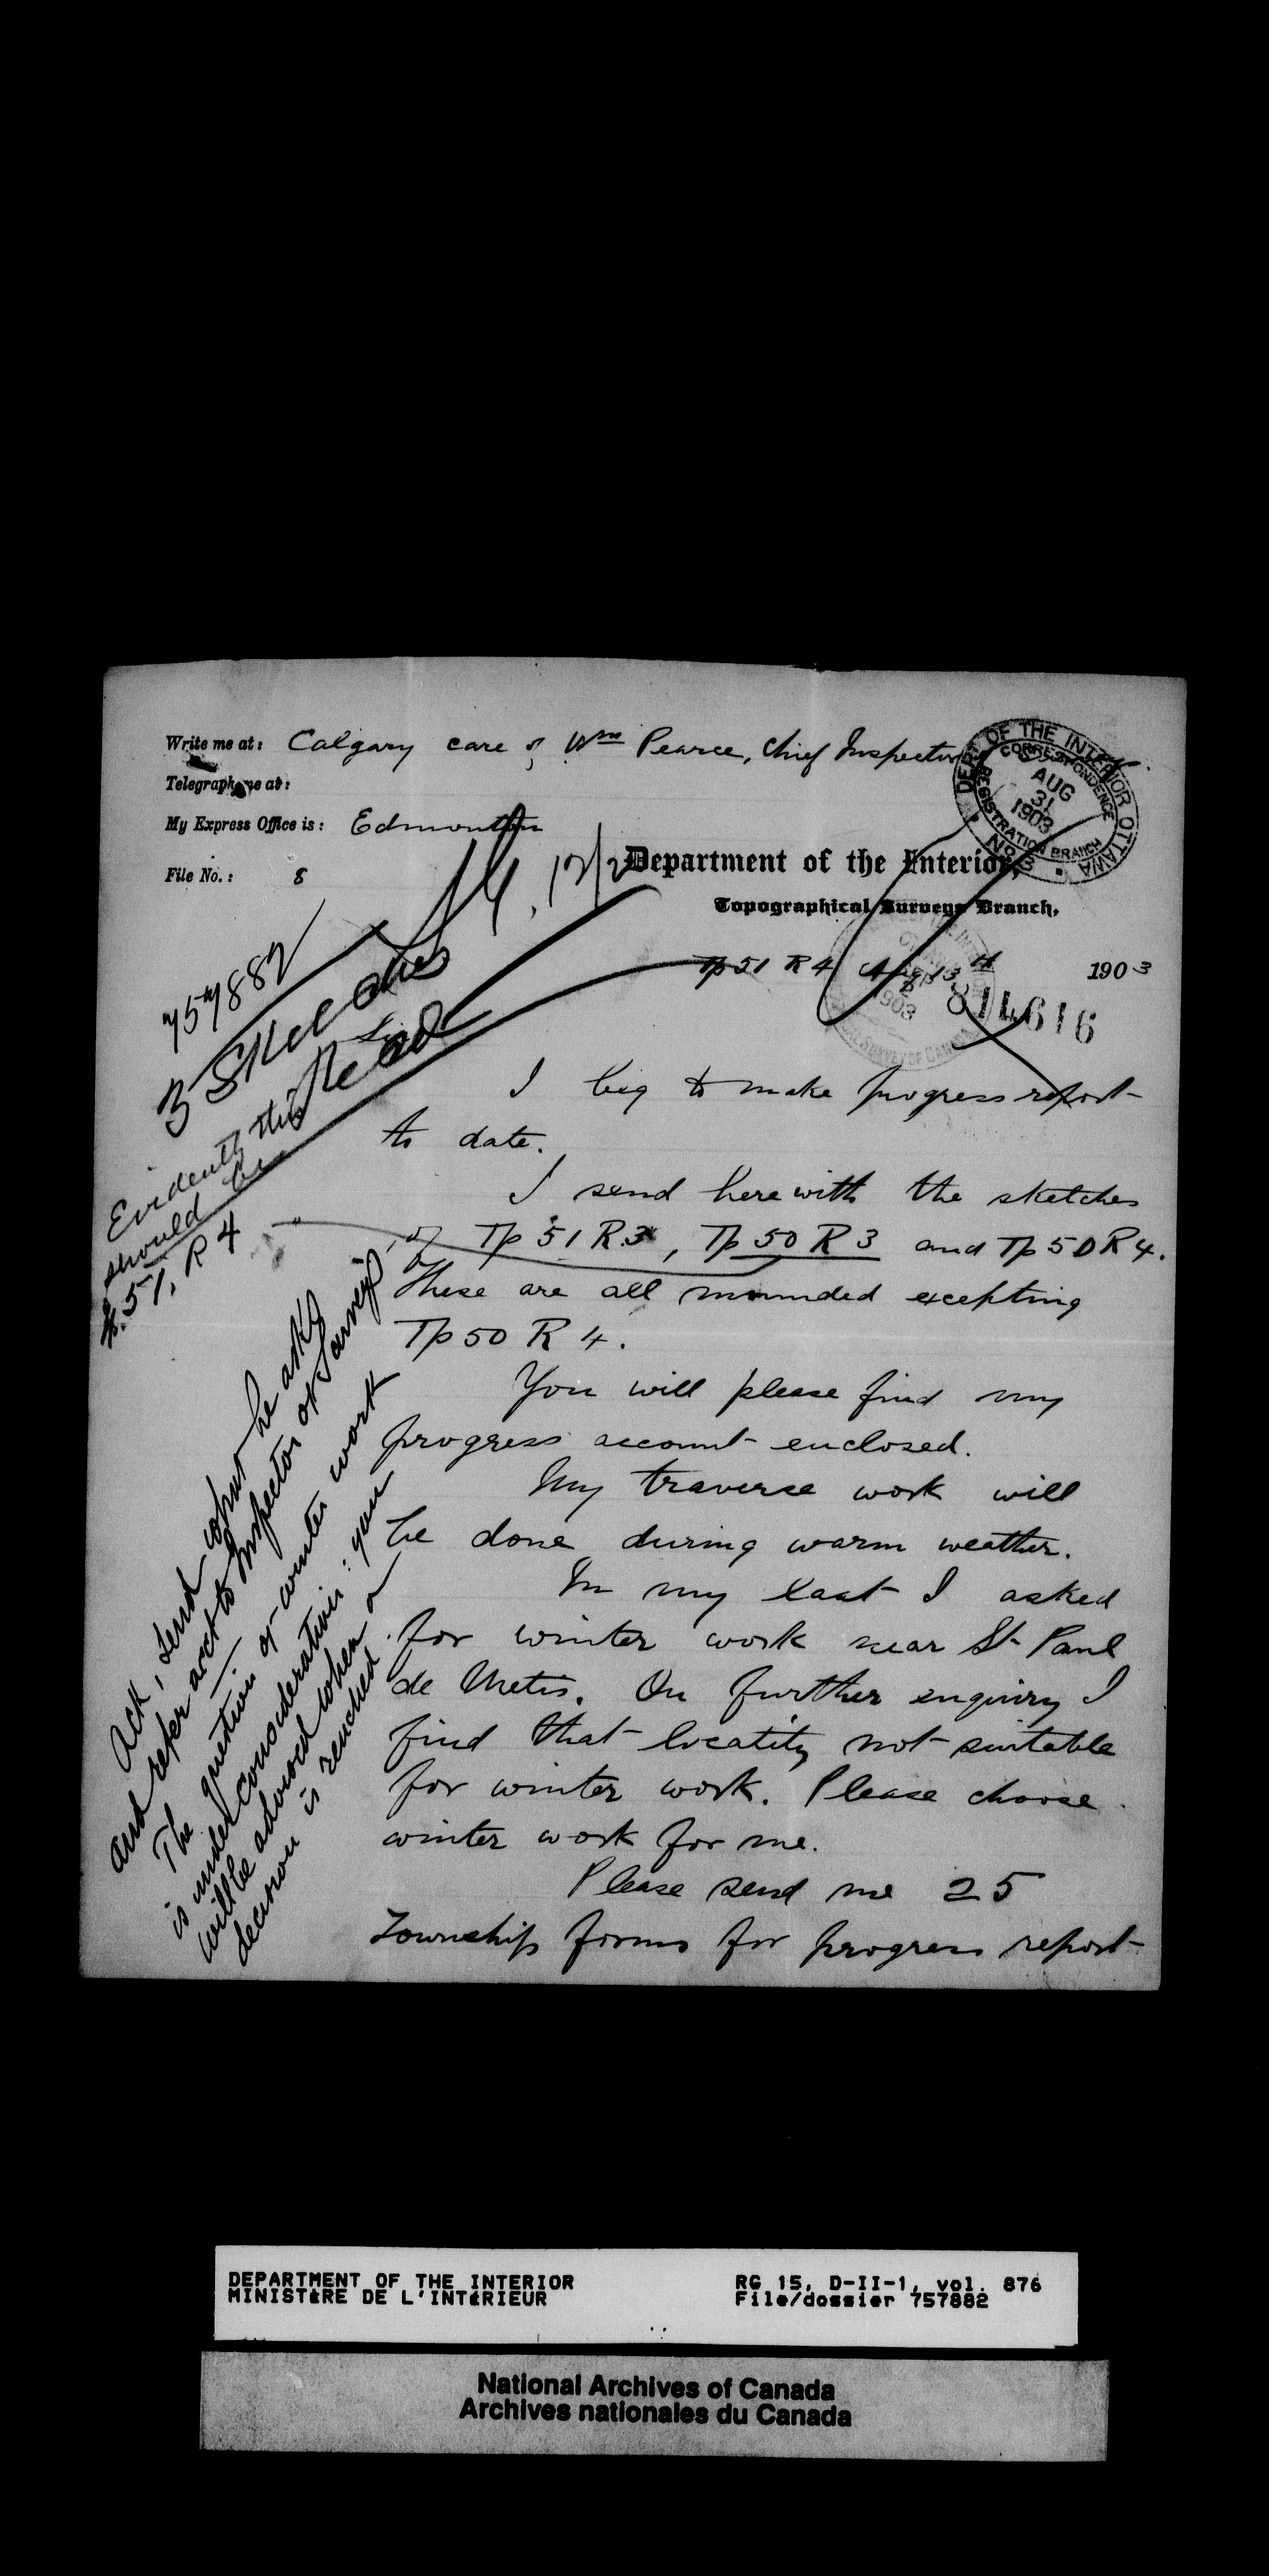 Write me at: Calgary care of Wm Pearce, Chief Inspector
Telegraph me at:
My Express Office is: Edmonton
File No.: 8
DEPT OF THE INTERIOR OTTAWA
CORRESPONDENCE
AUG
31
1903
REGISTRATION BRANCH
No 3
Department of the Interior,
Topographical Surveys Branch,
Tp 51 R 4 Aug 13th 1903
814616
757882
3 Sketches
Read
Evidently this
should be
51, R 4
I beg to make progress report
to date.
I send herewith the sketches
of Tp 51 R.3, Tp 50 R 3 and Tp 50 R 4.
These are all mounded excepting
Tp 50 R 4.
You will please find my
progress account enclosed.
My traverse work will
be done during warm weather.
In my last I asked
for winter work near St Paul
de Metis. On further enquiry I
find that locality not suitable
for winter work. Please choose
winter work for me.
Please send me 25
Township forms for progress report
Ack, send what he asks
and refer acct to Inspector of Surveys
The question of winter work
is under consideration: you
will be advised when a
decision is reached
DEPARTMENT OF THE INTERIOR
MINISTÈRE DE L'INTÉRIEUR
RG 15, D-II-1, vol. 876
File/dossier 757882
National Archives of Canada
Archives nationales du Canada